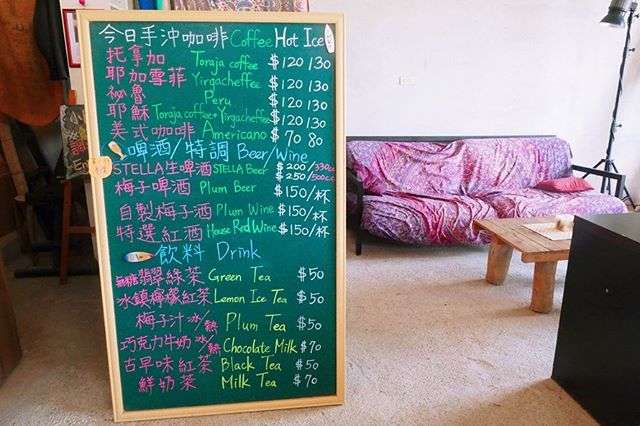 今日手沖咖啡 Coffee Hot Ice
托拿加 Toraja coffee $120 130
耶加雪菲 Yirgacheffee $120 130
祕魯 Peru $120 130
耶穌 Toraja coffee+Yirgacheffee $120 130
美式咖啡 Americano $70 80
啤酒/特調 Beer/Wine
STELLA生啤酒 STELLA Beer $200/330cc
$250/500cc
梅子啤酒 Plum Beer $150/杯
自製梅子酒 Plum Wine $150/杯
特選紅酒 House Red Wine $150/杯
飲料 Drink
無糖翡翠綠茶 Green Tea $50
冰鎮檸檬紅茶 Lemon Ice Tea $50
梅子汁 冰/熱 Plum Tea $50
巧克力牛奶 冰/熱 Chocolate Milk $70
古早味紅茶 Black Tea $50
鮮奶茶 Milk Tea $70